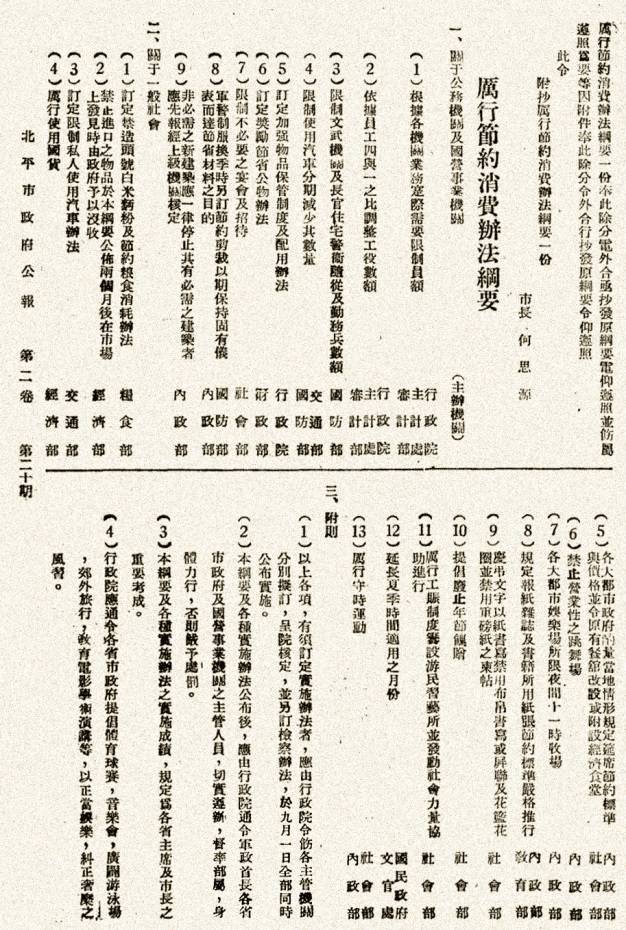 厲行節約消費辦法綱要一份奉此除分電外合亟抄發原綱要電仰遵照並飭屬
遵照爲要等因附件奉此除分令外合行抄發原綱要令仰遵照
此令
附抄厲行節約消費辦法綱要一份
市長 何思源
厲行節約消費辦法綱要
(主辦機關)
一、關于公務機關及國營事業機關
(1)根據各機關業務實際需要限制員額 行政院 主計處 審計部
(2)依據員工四與一之比調整工役數額 行政院 主計處 審計部
(3)限制文武機關及長官住宅警衛隨從及勤務兵數額 國防部
(4)限制使用汽車分期減少其數量 交通部 國防部
(5)訂定加強物品保管制度及配用辦法 行政院
(6)訂定獎勵節省公物辦法 財政部
(7)限制不必要之宴會及招待 社會部
(8)軍警制服換季時另訂節約剪裁以期保持固有儀
表而達節省材料之目的 國防部 內政部
(9)非必需之新建築應一律停止其有必需之建築者
應先報經上級機關核定 內政部
二、關于一般社會
(1)訂定禁造頭號白米麵粉及節約粮食消耗辦法 糧食部
(2)禁止進口之物品於本綱要公佈兩個月後在市場
上發見時由政府予以沒收 經濟部
(3)訂定限制私人使用汽車辦法 交通部
(4)厲行使用國貨 經濟部
北平市政府公報 第二卷 第二十期
(5)各大都市政府酌量當地情形規定筵席節約標準
與價格並令原有餐館改設或附設經濟食堂 內政部 社會部
(6)禁止營業性之跳舞場 內政部
(7)各大都市娛樂場所限夜間十一時收場 內政部
(8)規定報紙雜誌及書籍所用紙張節約標準嚴格推行 內政部 教育部
(9)慶弔文字以紙書寫禁用布帛書寫或屏聯及花籃花
圈並禁用重磅紙之柬帖 社會部
(10)提倡廢止年節餽贈 社會部
(11)厲行工賬制度籌設游民習藝所並發動社會力量協
助進行 社會部
(12)延長夏季時間適用之月份 國民政府 文官處
(13)厲行守時運動 社會部 內政部
三、附則
(1)以上各項,有須訂定實施辦法者,應由行政院令飭各主管機關
分別擬訂,呈院核定,並另訂檢察辦法,於九月一日全部同時
公布實施。
(2)本綱要及各種實施辦法公布後,應由行政院通令軍政首長各省
市政府及國營事業機關之主管人員,切實遵辦,督率部屬,身
體力行,否則嚴予處罰。
(3)本綱要及各種實施辦法之實施成績,規定爲各省主席及市長之
重要考成。
(4)行政院應通令各省市政府提倡體育球賽,音樂會,廣闢游泳場
,郊外旅行,教育電影學術演講等,以正當娛樂,糾正奢靡之
風習。